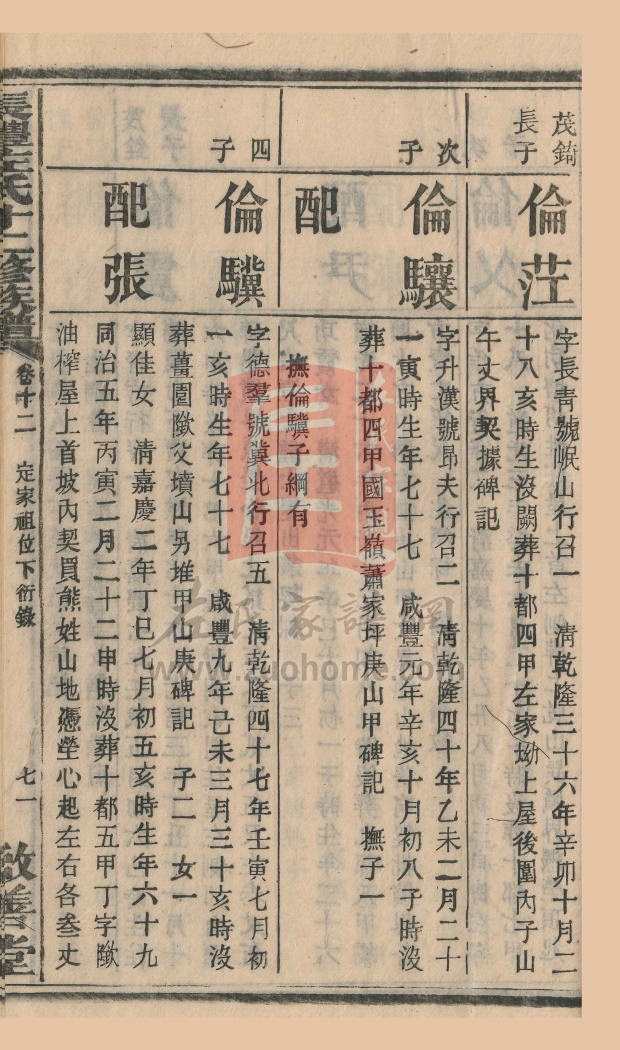 茂錡
長子
倫茳
字長青號岷山行召一　清乾隆三十六年辛卯十月二
十八亥時生沒闕葬十都四甲左家坳上屋後圍內子山
午丈界契據碑記
次子
倫驤
字升漢號昂夫行召二　清乾隆四十年乙未二月二十
一寅時生年七十七　咸豐元年辛亥十月初八子時沒
葬十都四甲國玉嶺蕭家坪庚山甲碑記　撫子一
配
撫倫驥子綱有
四子
倫驥
字德羣號冀北行召五　清乾隆四十七年壬寅七月初
一亥時生年七十七　咸豐九年己未三月三十亥時沒
葬薑園歟父墳山另堆甲山庚碑記　子二　女一
配張
顯佳女　清嘉慶二年丁巳七月初五亥時生年六十九
同治五年丙寅二月二十二申時沒葬十都五甲丁字歟
油榨屋上首坡內契買熊姓山地憑塋心起左右各叁丈
長澧左氏十二修族譜
卷十二
定家祖位下衍錄
七一
敬善堂
左氏家譜網
www.zuohome.com